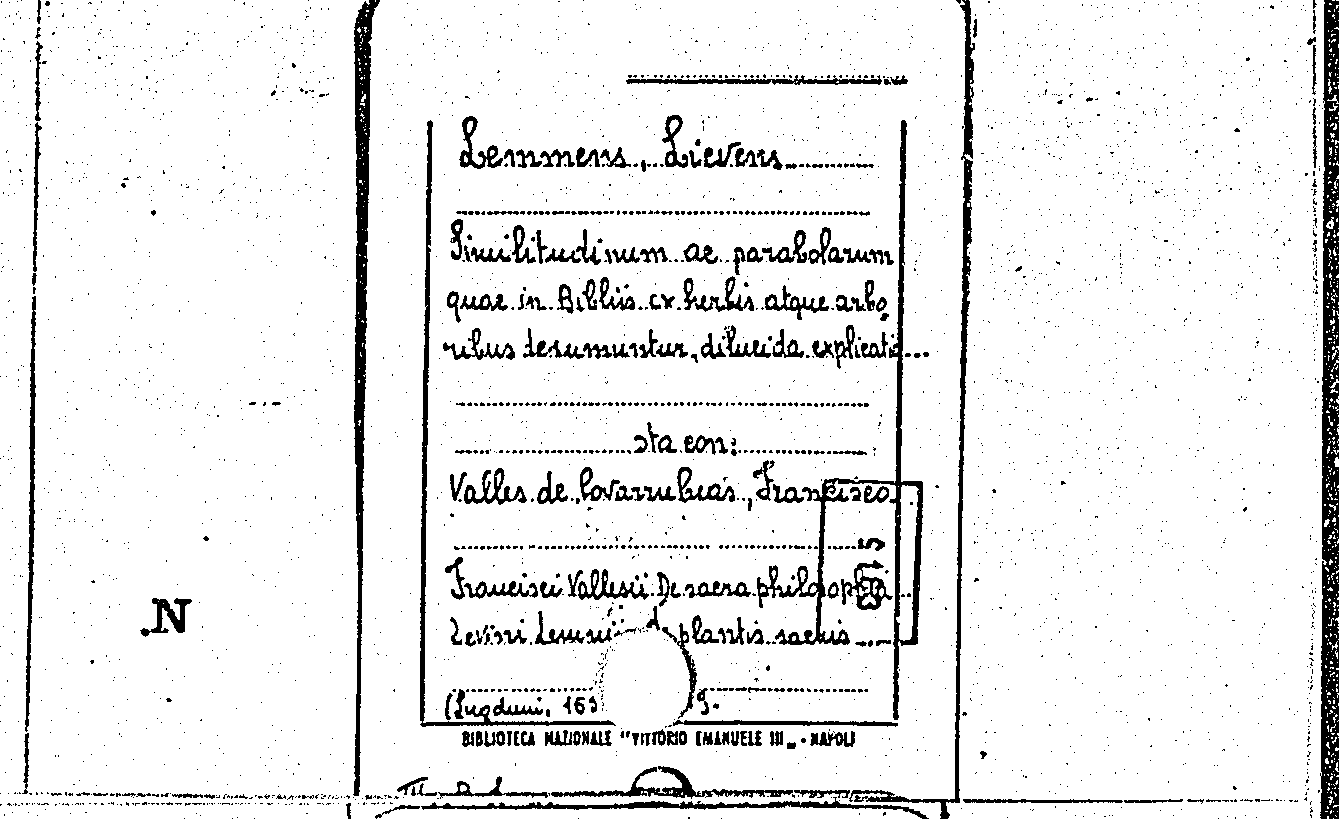 Lemmens, Lievens
Similitudinum ac parabolarum
quae in Bibliis ex herbis atque arbo
ribus desumuntur, dilucida explicatio...
sta con:
Valles de Covarrubias, Francisco
Francisci Vallesii De sacra philosophia...
Levini Lemnii De plantis sacris...
(Lugduni, 165
9.
BIBLIOTECA NAZIONALE "VITTORIO EMANUELE III" - NAPOLI
N.